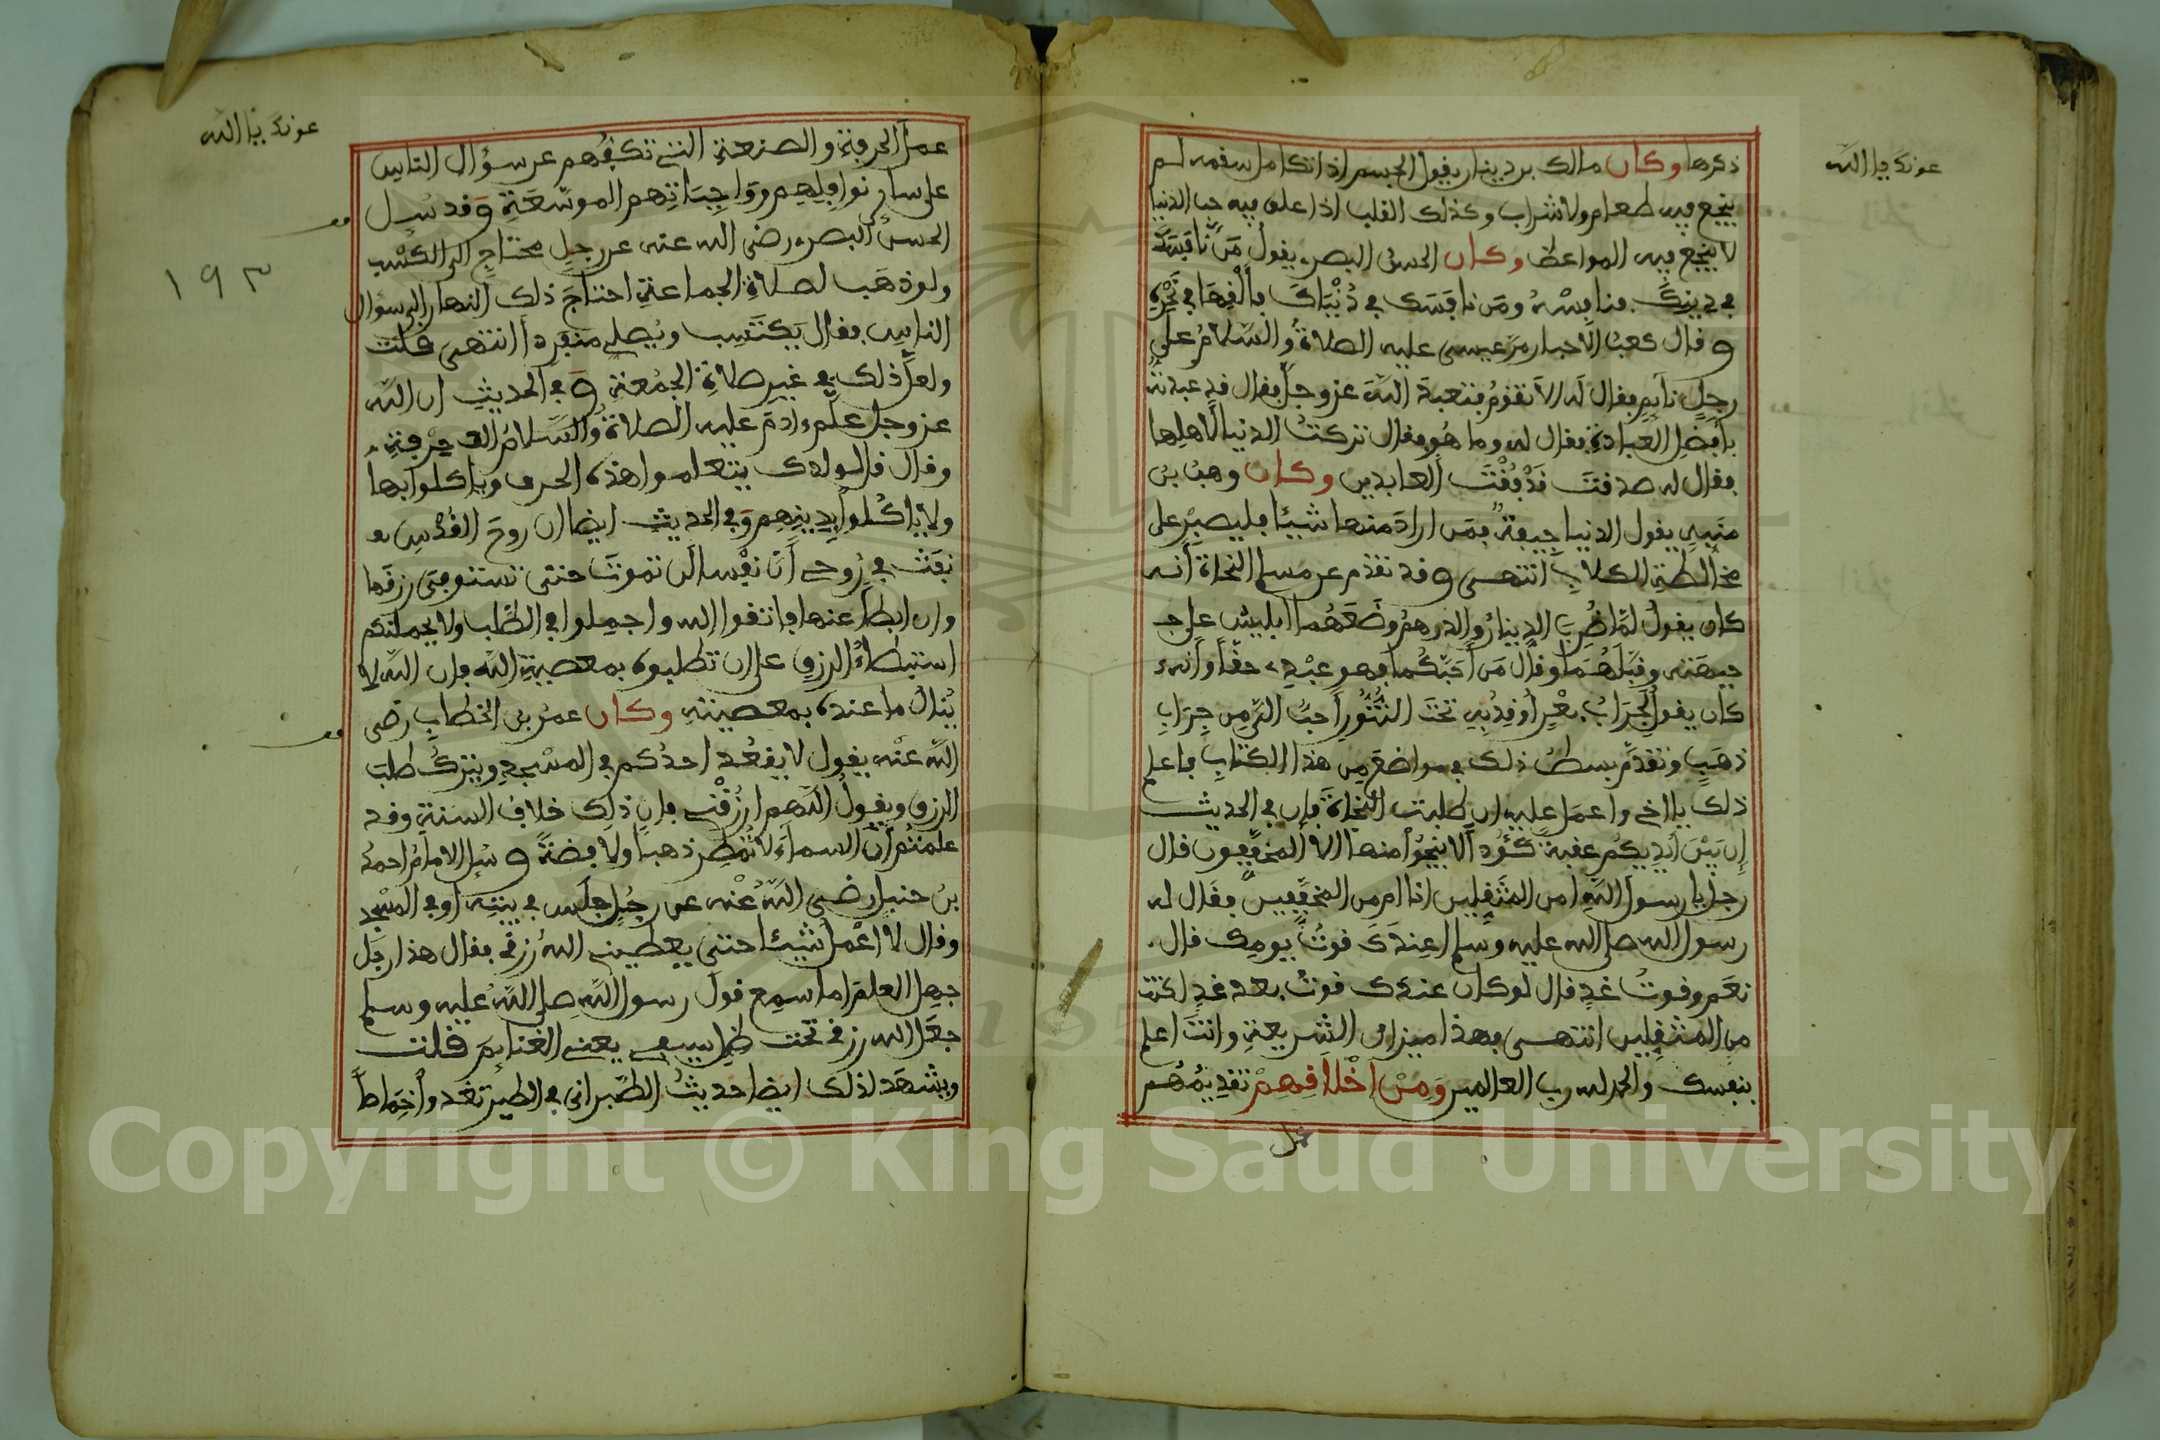 عونك يا الله
ذكرها وكان مالك بن دينار يقول الجسم اذا تكامل سقمه لم
ينجع فيه طعام ولا شراب وكذلك القلب اذا علق فيه حب الدنيا
لا ينجع فيه المواعظ وكان الحسن البصري يقول مَن نافَسَكَ
في دينِك فنافِسْهُ ومَن نافَسَك في دُنْيَاكَ فأَلْقِهَا في نَحْرِهِ
وقال كعبُ الاحبار مرّ عيسى عليه الصلاةُ والسّلامُ على
رجلٍ نايِمٍ فقال لَه الا تقومُ فتعبدَ اللّهَ عز وجلّ فقال قد عبدتُهُ
بأفضلِ العبادةِ فقال له وما هُو فقال تركتُ الدنيا لاهلِها
فقال له صدقتَ قد فُقْتَ العابدين وكان وهبُ بن
منَبِّهٍ يقول الدنيا جِيفةٌ فمَن ارادَ منها شيئا فليصبِرْ على
مخالطةِ الكلابِ انتهى وقد تقدم عن مسلم النحاة أنه
كان يقولُ لمّا ضُرِبَ الدينارُ والدرهمُ وضَعَهُما ابليسُ على جـ
جبهته وقبَّلَهُمَا وقال مَن أحبَّكُما فهو عبْدِي حقًا وأنه
كان يقول لَجِرَابُ بعْرٍ أُوقِدُ به تحتَ التنُّورِ احبُّ اليَّ مِن جِرَابِ
ذهَبٍ وتقدَّم بسطُ ذلك في مواضعَ مِن هذا الكتابِ فاعلم
ذلك يا اخي واعمَل عليه ان طلبت النجاةَ فإن في الحديث
إن بَيْنَ أيديكُم عقبةً كَؤُداً لا ينجُوا منها الا المخِفُّون فقال
رجلٌ يا رسول اللهِ امن المثقِلين انا ام من المخِفِّين فقال له
رسول الله صلى الله عليه وسلم اعندَك قوتُ يومِك قال
نعَم وقوتُ غدٍ قال لو كان عندك قوتُ بعد غدٍ لكنت
من المثقِلين انتهى فهذا ميزان الشريعةِ وانتَ اعلم
بنفسك والحمد لله رب العالمين وَمِنْ اَخْلَاقِهِمْ تقدِيمُهُم
عمل
عونك يا الله
١٩٣
عملَ الحرفةِ والصنعةِ التي تكفُّهم عن سؤال الناس
على ساير نوافِلِهِم ووَاجِبَاتِهم الموسّعَةِ وقد سُيِل
الحسنُ البصري رضي الله عنه عن رجلٍ محتاجٍ الى الكسْب
ولو ذهَب لصلاةِ الجماعةِ احتاجَ ذلك النهار الى سؤال
الناسِ فقال يَكتَسِب ويُصلي منفردا انتهى قلت
ولعلّ ذلك في غير صلاةِ الجمُعةِ وَفي الحديثِ ان اللّه
عز وجل علّم ءادمَ عليه الصلاةُ والسّلامُ الفَ حِرْفةٍ
وقال قل لولدك يتعلموا هذه الحرف وياكلوا بها
ولا ياكُلوا بِدِينِهِم وَفي الحديث ايضا ان روحَ القُدْسِ
نفَثَ في رُوعي أنّ نفْسا لن تموتَ حتى تستوفِيَ رزقها
وان ابطَأ عنها فاتقوا الله واجمِلوا في الطّلب ولا يحملنكم
استبطاءُ الرزقِ على ان تطلبوه بمعصيةِ اللّه فان اللّه لا
يُنال ما عنده بمعصيتهِ وكان عمرُ بن الخطابِ رضي
اللّه عنْه يقول لا يقعُد احدُكم في المسْجدِ ويترك طلبَ
الرزقِ ويقولُ اللّهم ارزُقْني فان ذلك خلافُ السنةِ وقد
علمتُم أن السماءَ لا تُمْطِر ذهبا ولا فِضةً وسُيل الامامُ احمدُ
بنُ حنبلٍ رضي اللّهُ عنْه عن رجُلٍ جلَس في بيْتِه او في المسْجد
وقال لا اعْمل شيئا حتى يعطيني الله رزقي فقال هذا رجل
جهل العلمَ اما سمِع قولَ رسول اللّه صلى اللّه عليه وسلم
جعَل الله رزقي تحت ظل سيفي يعني الغنايمَ قلت
ويشهَد لذلك ايضا حديثُ الطبراني في الطير تغدوا خِماصاً
Copyright © King Saud University